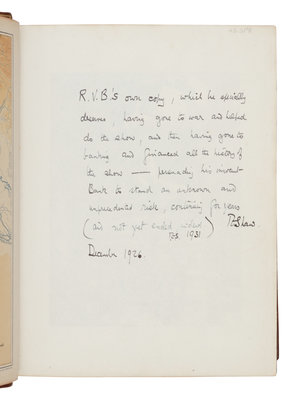 R.V.B's own copy, which he specially
deserves, having gone to war and helped
do the show, and then having gone to
banking and financed all the history of
the show — persuading his innocent
Bank to stand an unknown and
unprecedented risk, continuing for years
(as not yet ended
1931) TEShaw.
December 1926.